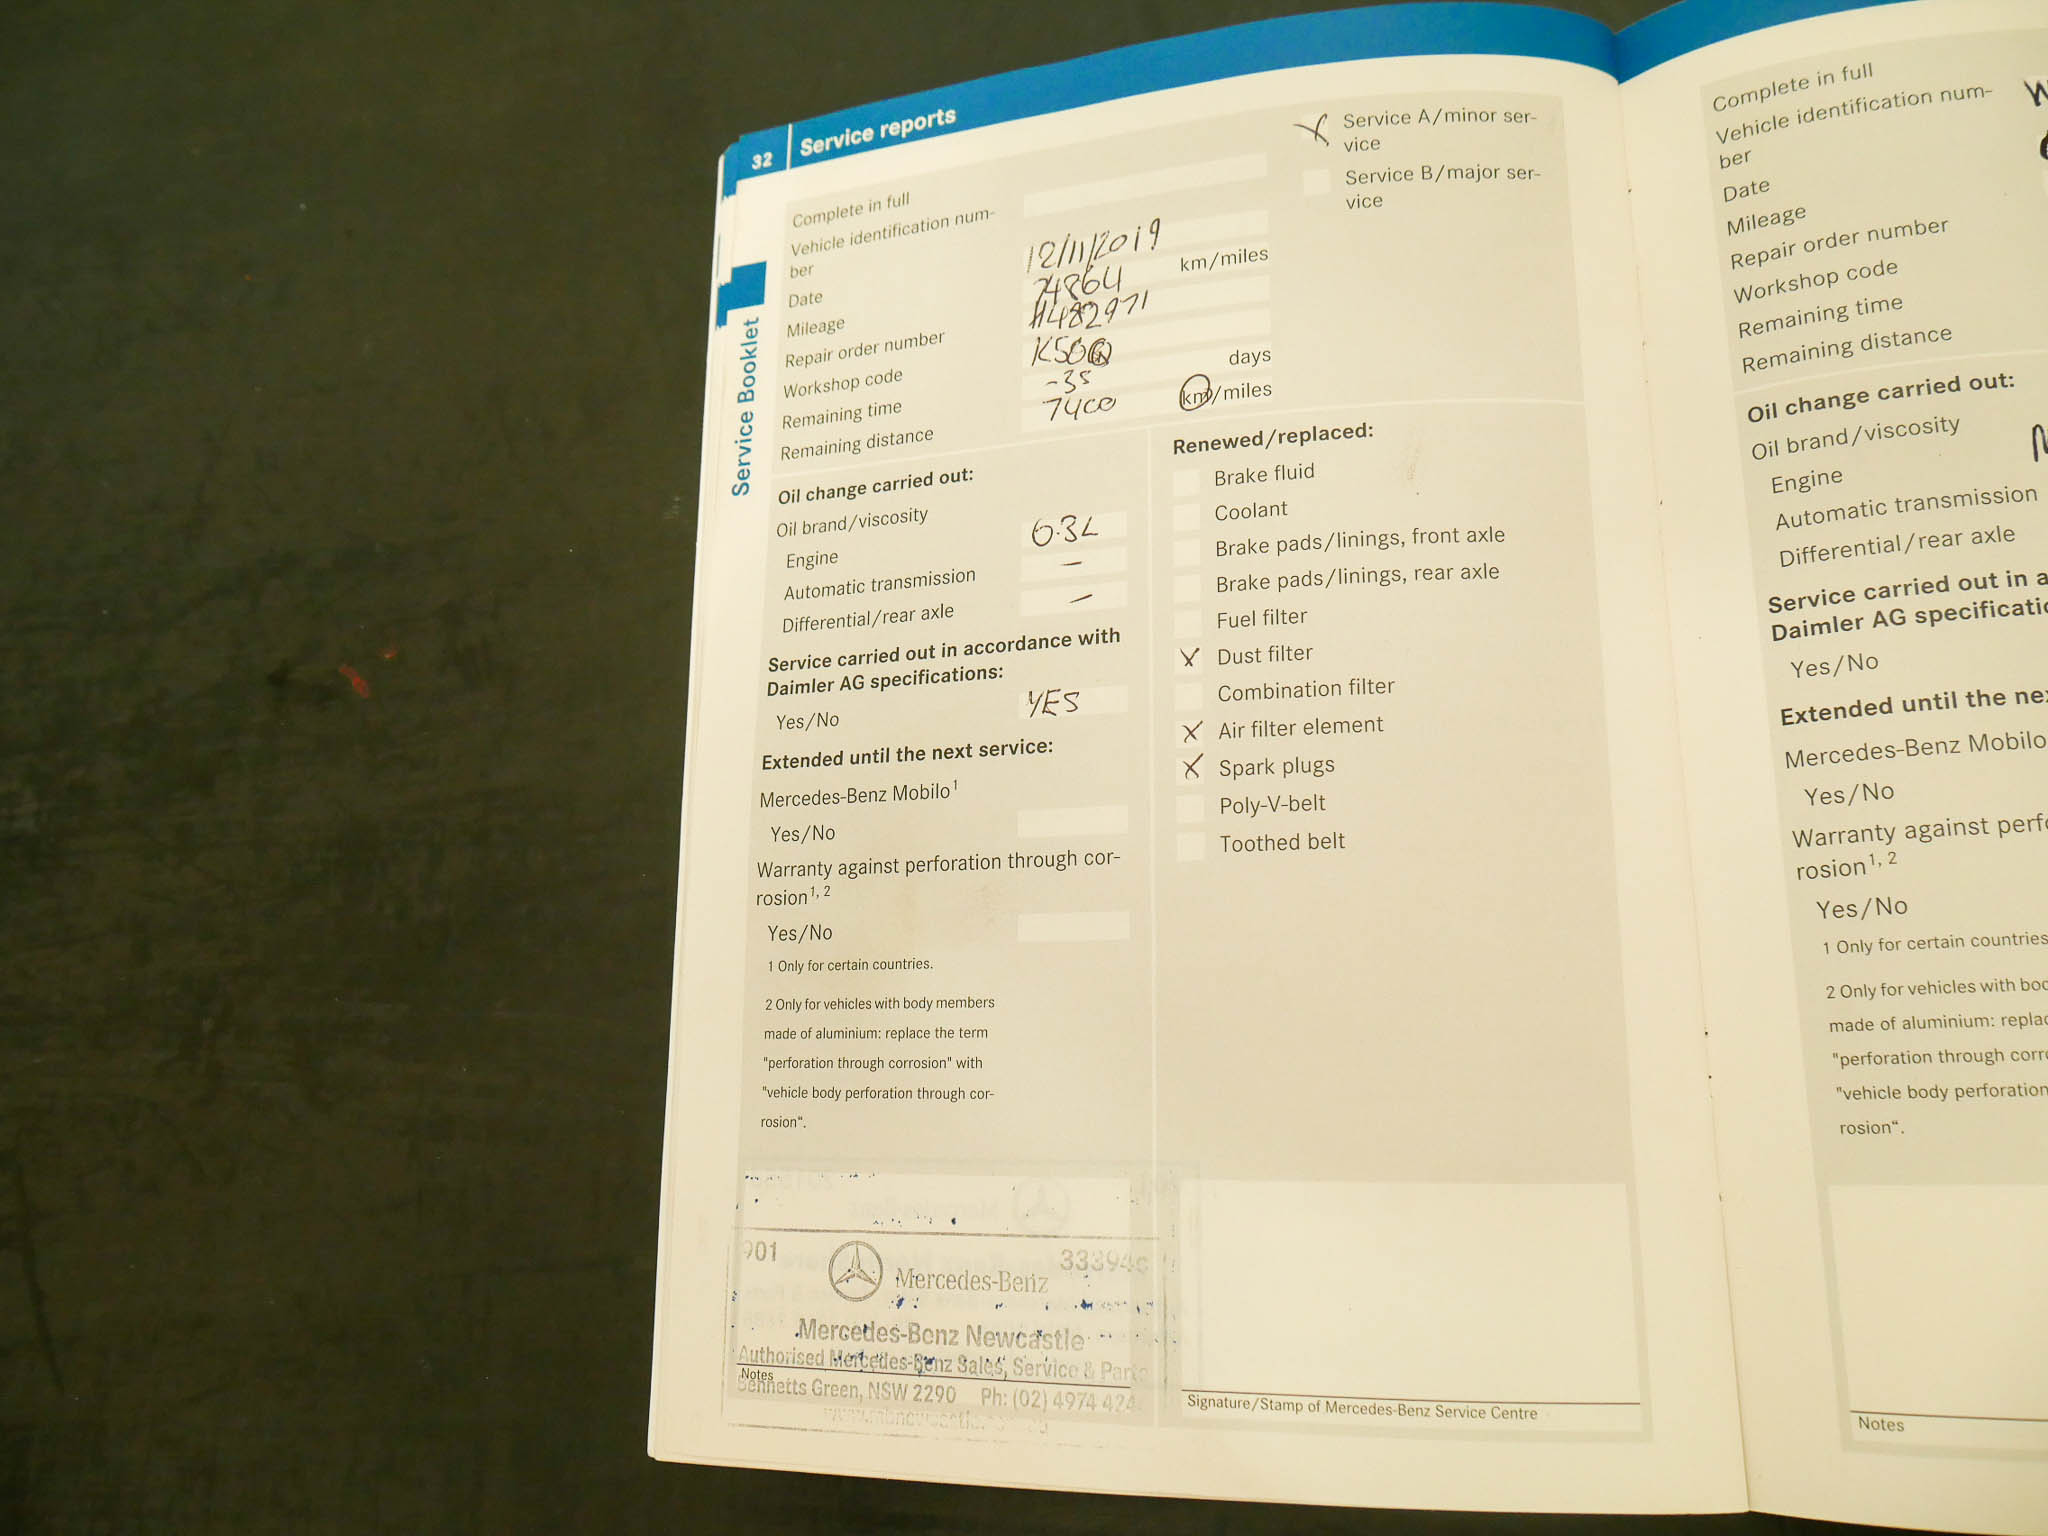 32 Service reports
Service Booklet
Complete in full
Vehicle identification num-
ber
Date 12/11/2019
Mileage 74864 km/miles
Repair order number #482971
Workshop code
Remaining time -35 days
Remaining distance 7400 km/miles
Service A/minor ser-
vice
Service B/major ser-
vice
Oil change carried out:
Oil brand/viscosity
Engine 6.3L
Automatic transmission –
Differential/rear axle –
Service carried out in accordance with
Daimler AG specifications:
Yes/No YES
Extended until the next service:
Mercedes-Benz Mobilo1
Yes/No
Warranty against perforation through cor-
rosion1, 2
Yes/No
1 Only for certain countries.
2 Only for vehicles with body members
made of aluminium: replace the term
"perforation through corrosion" with
"vehicle body perforation through cor-
rosion“.
Renewed/replaced:
Brake fluid
Coolant
Brake pads/linings, front axle
Brake pads/linings, rear axle
Fuel filter
X Dust filter
Combination filter
X Air filter element
X Spark plugs
Poly-V-belt
Toothed belt
901
Mercedes-Benz
Mercedes-Benz Newcastle
Authorised Mercedes-Benz Sales, Service & Parts
Notes
Bennetts Green, NSW 2290 Ph: (02) 4974 424
Signature/Stamp of Mercedes-Benz Service Centre
Complete in full
Vehicle identification num-
ber
Date
Mileage
Repair order number
Workshop code
Remaining time
Remaining distance
Oil change carried out:
Oil brand/viscosity
Engine
Automatic transmission
Differential/rear axle
Service carried out in a
Daimler AG specificatio
Yes/No
Extended until the nex
Mercedes-Benz Mobilo
Yes/No
Warranty against perfo
rosion1, 2
Yes/No
1 Only for certain countries
2 Only for vehicles with bod
made of aluminium: replac
"perforation through corro
"vehicle body perforation
rosion“.
Notes